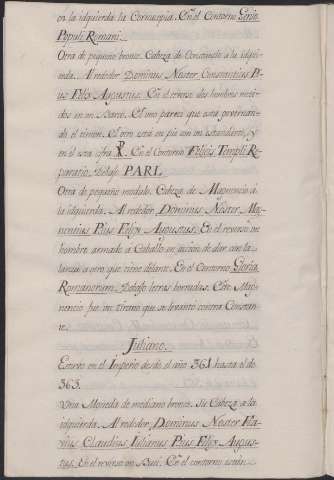 en la idquierda la Cornucopia. En el Contorno Genio
Populi Romani.
Otra de pequeño bronce. Cabeza de Constancio a la idqui-
erda. Al rededor Dominus Noster Constantius Pi-
us Felix Augustus. En el reverso dos hombres meti-
dos en un Barco. El uno parece que está governan-
do el timon. El otro está en pie con un estandarte, y
en él esta cifra ☧. En el Contorno Felicis Templi Re-
paratio. Debajo PARL.
Otra de pequeño modulo. Cabeza de Magnencio á
la idquierda. Al rededor Dominus Noster Ma-
nentius Pius Felix Augustus. En el reverso un
hombre armado a Caballo en accion de dar con la
lanza a otro que tiene delante. En el Contorno Gloria
Romanorum. Debajo letras borradas. Este Mag-
nencio fue un tirano que se levantó contra Constan-
te.
Juliano.
Estuvo en el Imperio desde el año 361 hasta el de
363.
Una Moneda de mediano bronce. Su Cabeza a la
idquierda. Al rededor Dominus Noster Fla-
vius Claudius Iulianus Pius Felix Augus-
tus. En el reverso un Buei. En el contorno